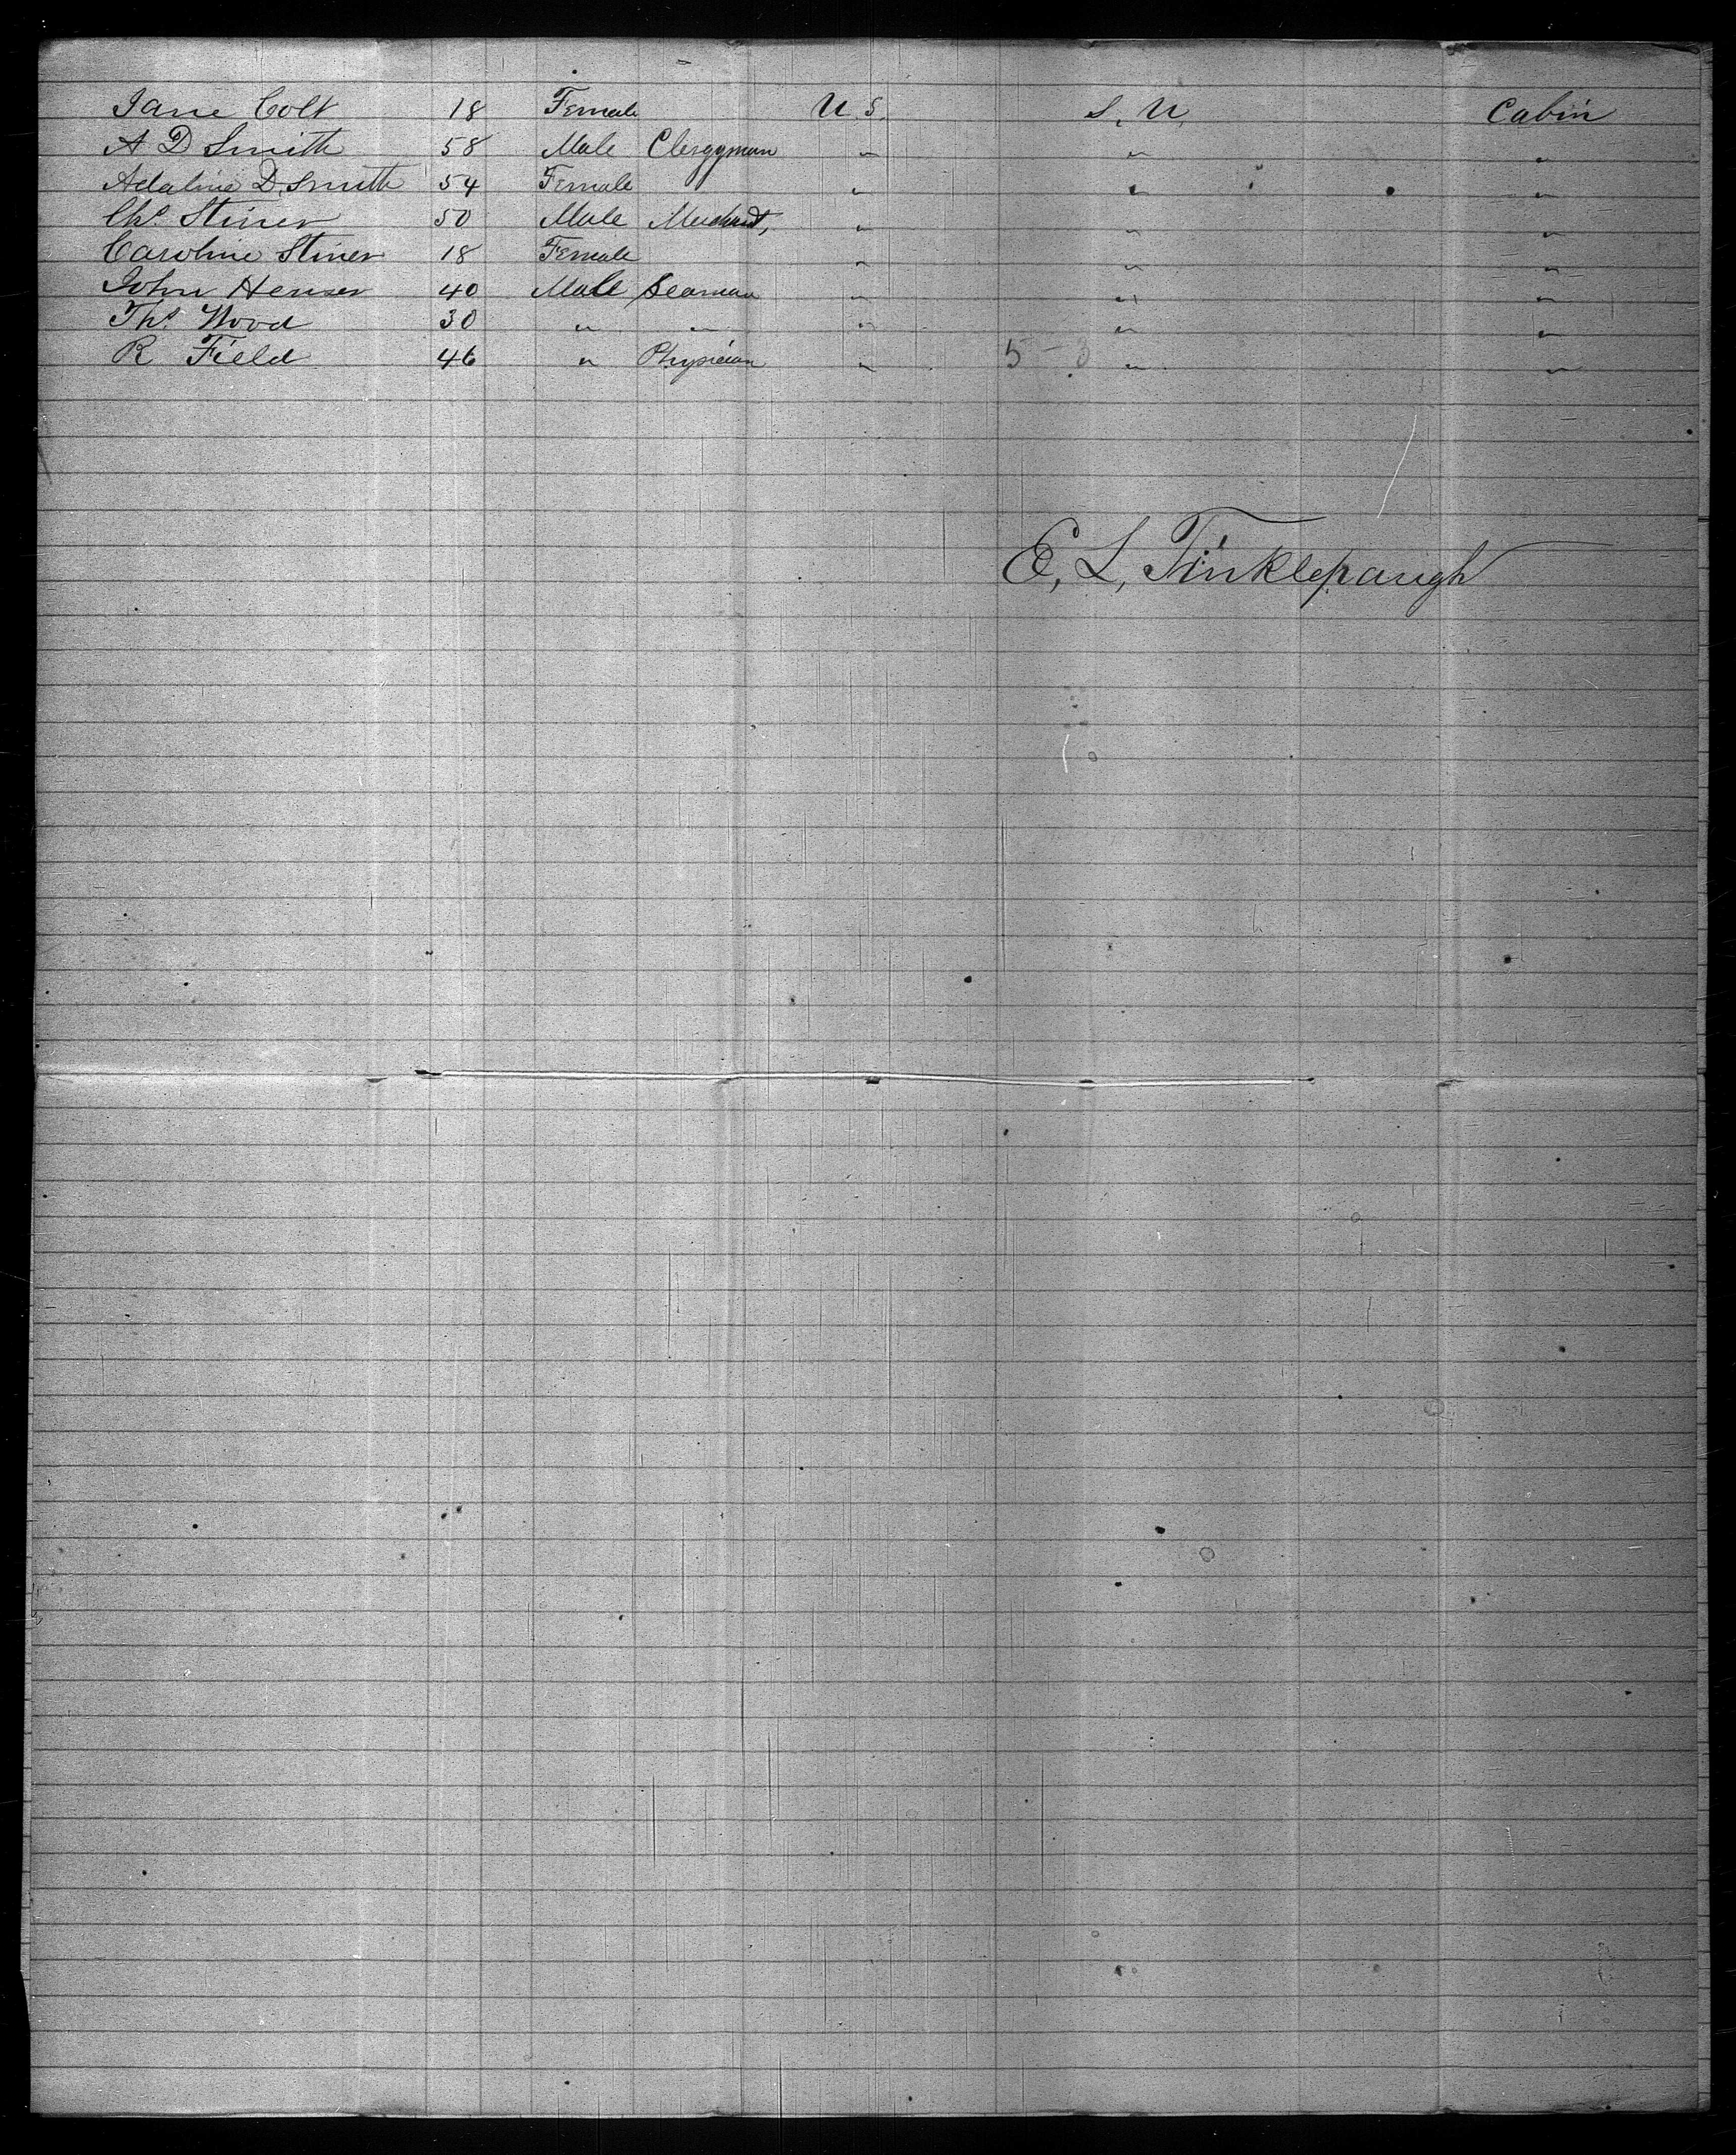 Jane Colt 18 Female U.S. S.U. Cabin
A D Smith 58 Male Clergyman " " "
Adaline D. Smith 54 Female " " "
Chs. Stiner 50 Male Merchant, " " "
Caroline Stiner 18 Female " " "
John Henser 40 Male Seaman " " "
Ths. Wood 30 " " " " "
R Field 46 " Physician " 5-3 " "
E, L, Tinklepaugh